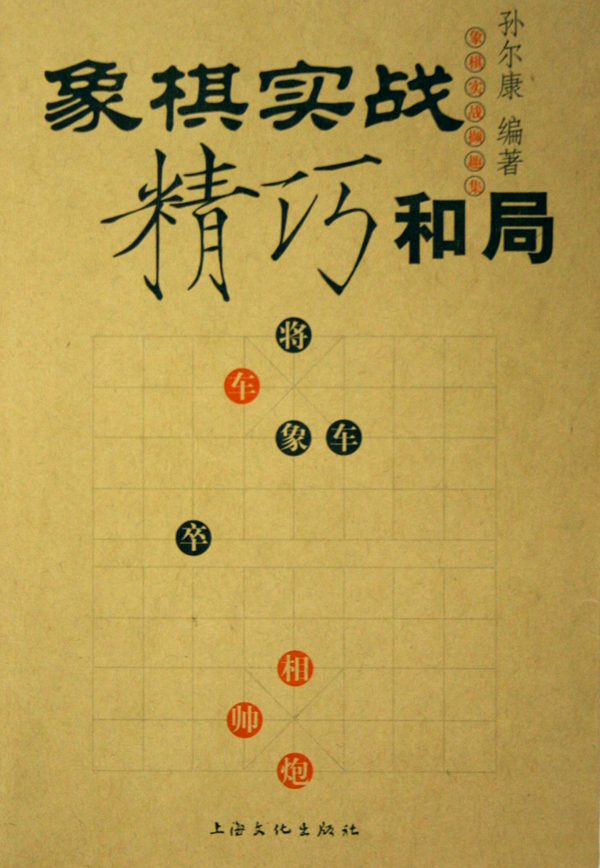 象棋实战
精巧和局
象棋实战撷趣集
孙尔康 编著
将
车
象 车
卒
相
帅
炮
上海文化出版社